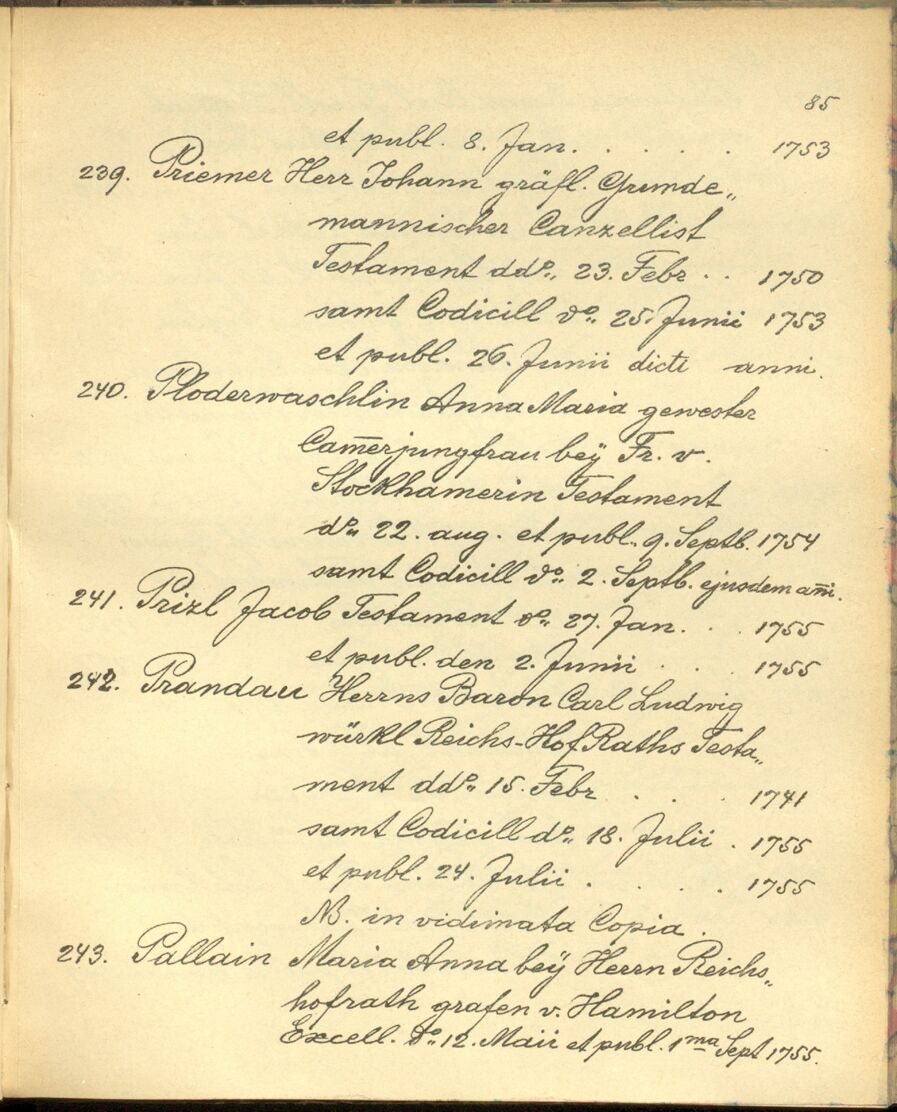 85
et publ. 8. Jan. . . . . . 1753
239. Priemer Herr Johann gräfl. Grunde„
mannischer Canzellist
Testament ddo„ 23. Febr . . 1750
samt Codicill do„ 25. Junii 1753
et publ. 26. Junii dicti anni.
240. Ploderwaschlin Anna Maria gewester
Cam̄erjungfrau beÿ Fr. v.
Stockhamerin Testament
do„ 22. aug. et publ. 9. Septb. 1754
samt Codicill do„ 2. Septb. ejusdem an̄i.
241. Prizl Jacob Testament do„ 27. Jan. . . 1755
et publ. den 2. Junii . . 1755
242. Prandau Herrns Baron Carl Ludwig
würkl Reichs-Hof Raths Testa„
ment ddo„ 15. Febr . . . 1741
samt Codicill do„ 18. Julii . 1755
et publ. 24. Julii . . . . 1755
NB. in vidimata Copia.
243. Pallain Maria Anna beÿ Herrn Reichs„
hofrath grafen v. Hamilton
Excell. Do„ 12. Maii et publ. 1ma Sept 1755.